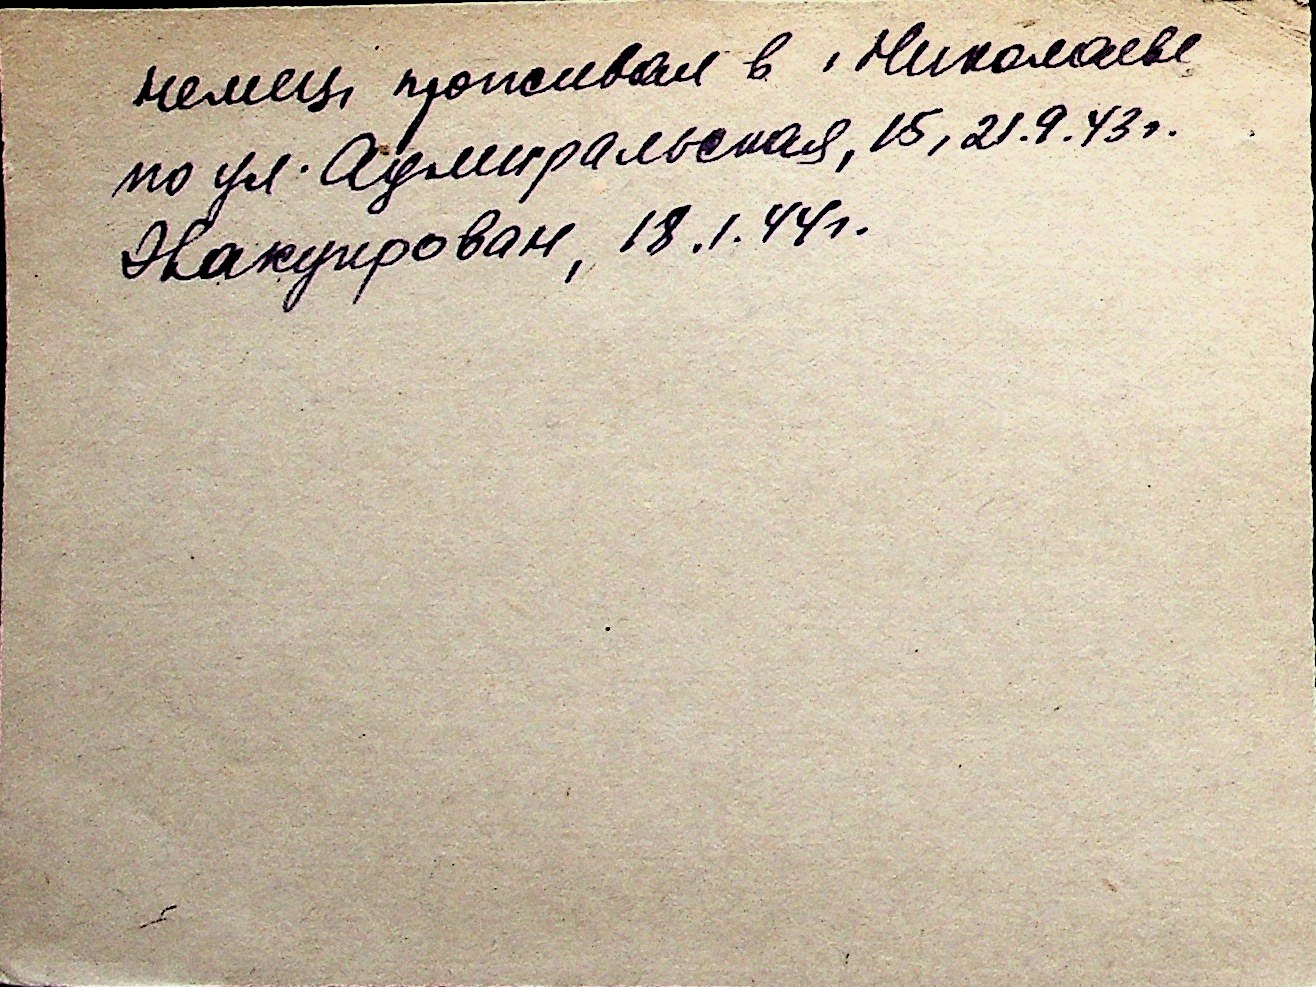 немец, проживал в г. Николаеве
по ул. Адмиральская, 15, 21.9.43 г.
Эвакуирован, 18.1.44 г.